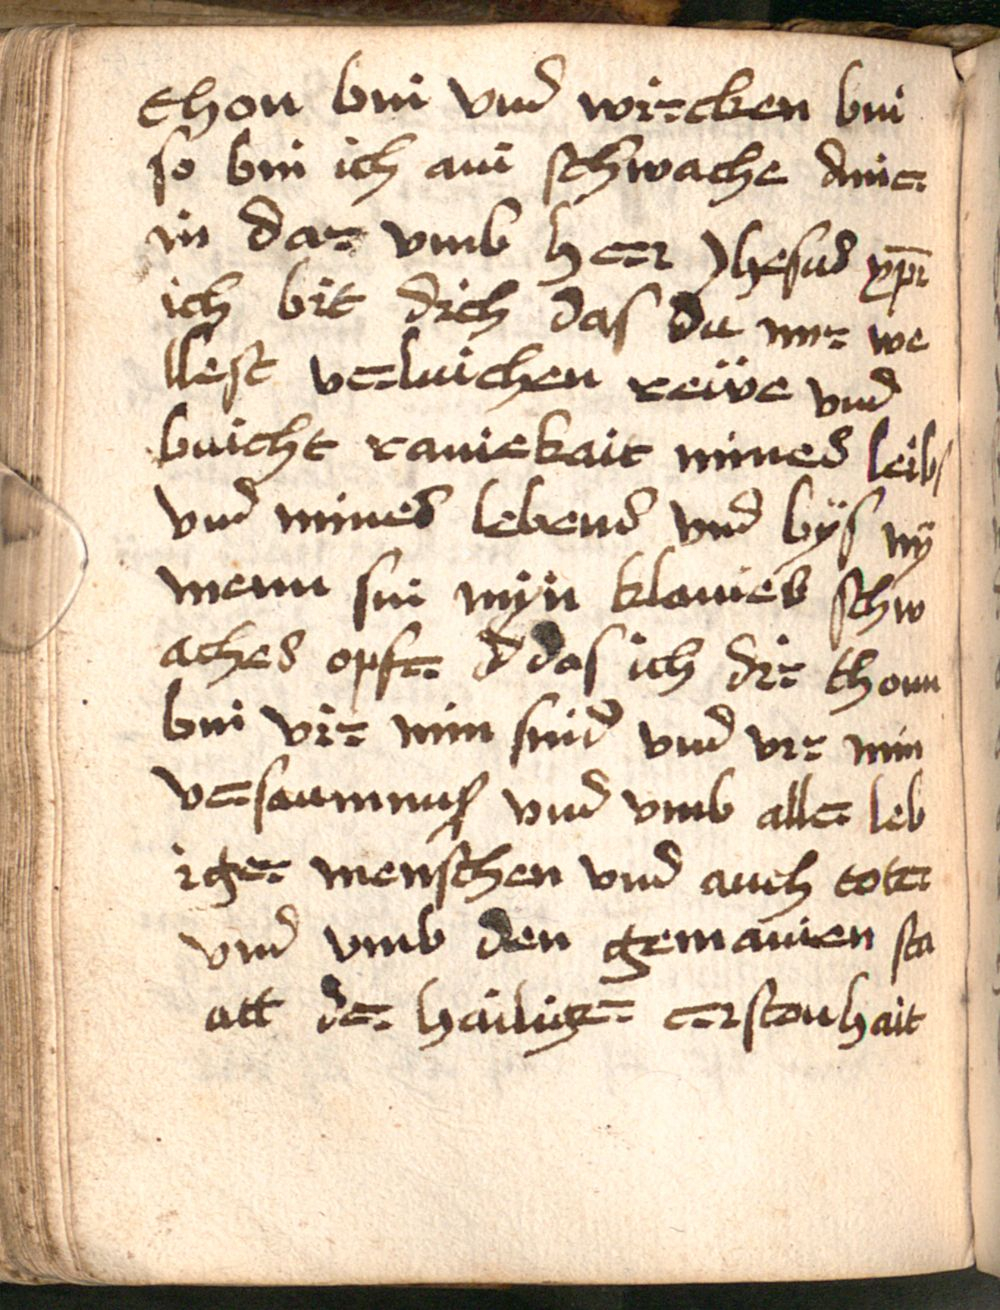 thon bin vnd wircken bin
so bin ich ain schwache dine
rin dar vmb herr Jhesus xpr
ich bit dich das du mir we
llest verluichen reüve vnd
buicht rainekait mines leibs
vnd mines lebens vnd bÿs nÿ
menn sin mÿn klaines schw
aches opfer d das ich dir thonn
bin vir min sind vnd vir min
versaumnus vnd vmb aller leb
iger menschen vnd auch toter
vnd vmb den gemainen sta
att der hailigen cerstenhait